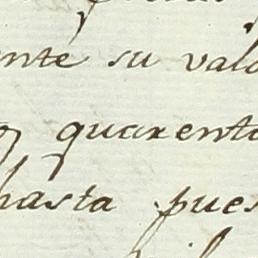 nte su valo
quarenta
hasta pues